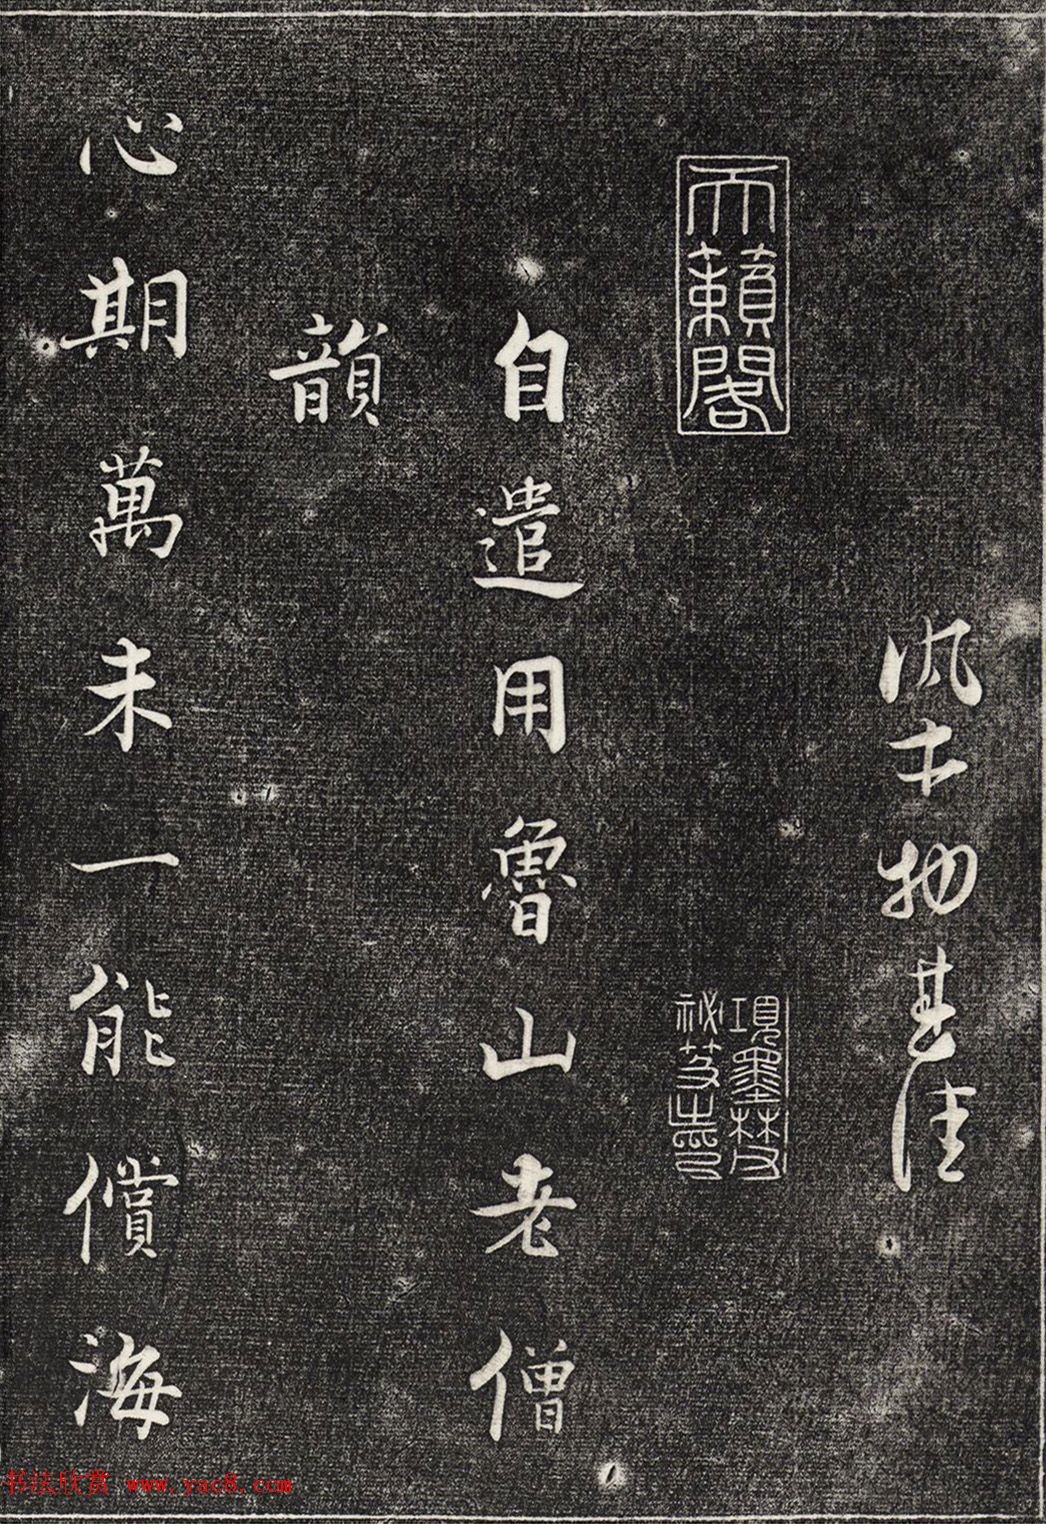 風土物甚佳
天籟閣
項墨林父
祕笈之印
自遣用魯山老僧
韻
心期萬未一能償海
书法欣赏 www.yac8.com